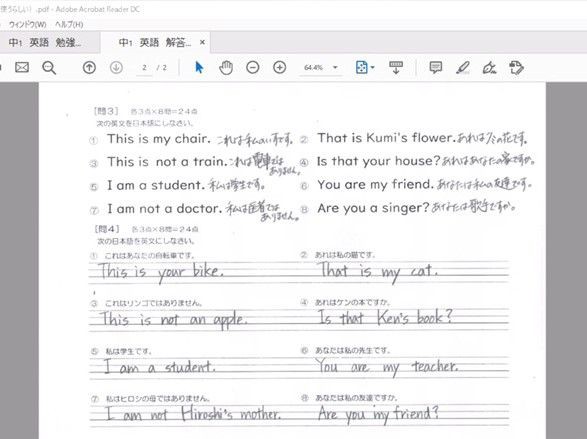 使うらしい) .pdf - Adobe Acrobat Reader DC
ウィンドウ(W) ヘルプ(H)
中1 英語 勉強... 中1 英語 解答... ×
2 / 2 64.4%
[問3] 各3点×8問=24点
次の英文を日本語にしなさい。
① This is my chair. これは私のいすです。 ② That is Kumi's flower. あれはクミの花です。
③ This is not a train. これは電車ではありません。 ④ Is that your house? あれはあなたの家ですか。
⑤ I am a student. 私は学生です。 ⑥ You are my friend. あなたは私の友達です。
⑦ I am not a doctor. 私は医者ではありません。 ⑧ Are you a singer? あなたは歌手ですか。
[問4] 各3点×8問=24点
次の日本語を英文にしなさい。
① これはあなたの自転車です。 ② あれは私の猫です。
This is your bike. That is my cat.
③ これはリンゴではありません。 ④ あれはケンの本ですか。
This is not an apple. Is that Ken's book?
⑤ 私は学生です。 ⑥ あなたは私の先生です。
I am a student. You are my teacher.
⑦ 私はヒロシの母ではありません。 ⑧ あなたは私の友達ですか。
I am not Hiroshi's mother. Are you my friend?